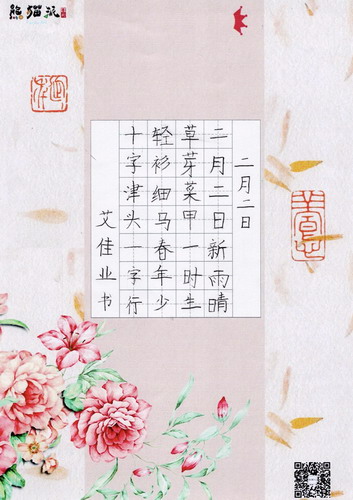 熊猫派
二月二日
二月二日新雨晴
草芽菜甲一时生
轻衫细马春年少
十字津头一字行
艾佳业书